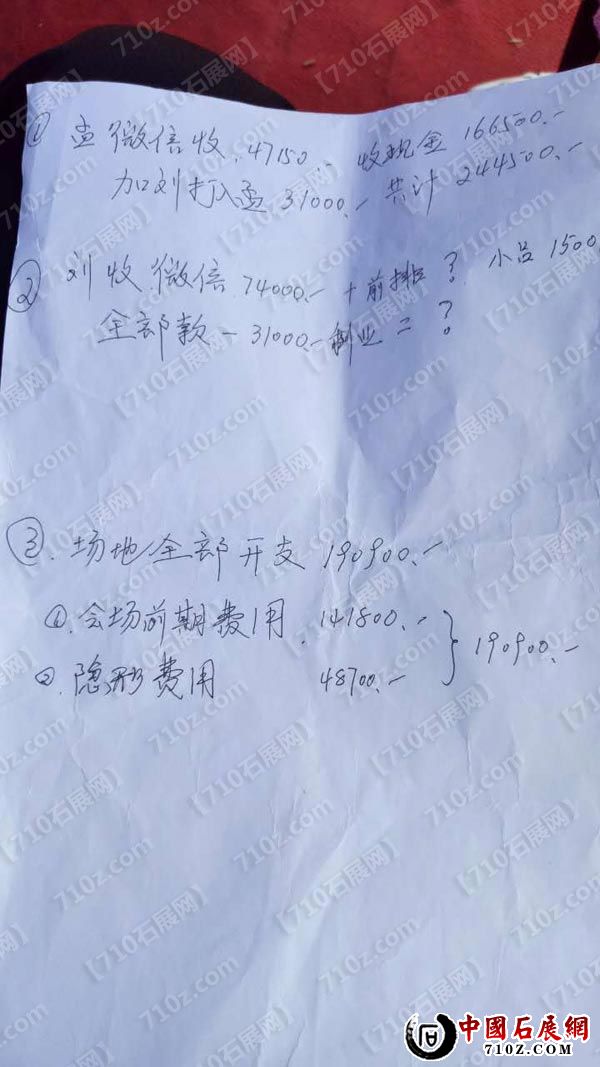 ① 孟微信收.47150.- 收现金166500.-
加刘打入孟31000.- 共计244500.-
② 刘收.微信.74000.- + 前排? 小品1500
全部款 - 31000.- = ?
③.场地全部开支190900.-
①.会场前期费用.141800.-
190900.-
②.隐形费用 48700.-
【710石展网】
710z.com
中國石展網
710Z.COM